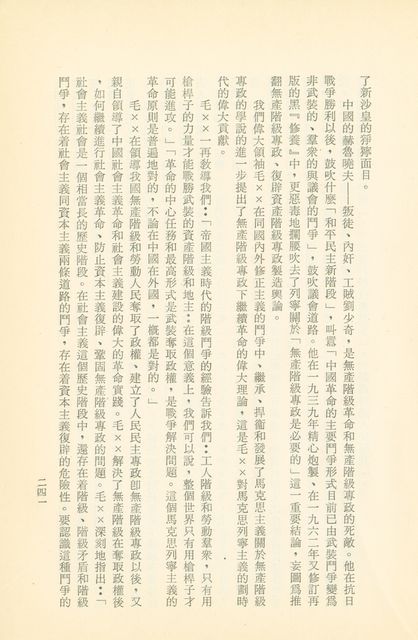 了新沙皇的猙獰面目。
中國的赫魯曉夫——叛徒、內奸、工賊劉少奇，是無產階級革命和無產階級專政的死敵。他在抗日
戰爭勝利以後，鼓吹什麼「和平民主新階段」，叫嚣「中國革命的主要鬥爭形式目前已由武裝鬥爭變爲
非武裝的、羣衆的與議會的鬥爭」，鼓吹議會道路。他在一九三九年精心炮製、在一九六二年又修訂再
版的黑『修養』中，更惡毒地攔腰吹去了列寧關於「無產階級專政是必要的」這一重要結論，妄圖爲推
翻無產階級專政、復辟資產階級專政製造輿論。
我們偉大領袖毛××在同國內外修正主義的鬥爭中，繼承、捍衛和發展了馬克思主義關於無產階級
專政的學說的進一步提出了無產階級專政下繼續革命的偉大理論，這是毛××對馬克思列寧主義的劃時
代的偉大貢獻。
毛××一再教導我們：「帝國主義時代的階級鬥爭的經驗告訴我們：工人階級和勞動羣衆，只有用
槍桿子的力量才能戰勝武裝的資產階級和地主；在這個意義上，我們可以說，整個世界只有用槍桿子才
可能進攻。」「革命的中心任務和最高形式是武裝奪取政權，是戰爭解決問題。這個馬克思列寧主義的
革命原則是普遍地對的，不論在中國在外國，一概都是對的。」
毛××在領導我國無產階級和勞動人民奪取了政權、建立了人民民主專政卽無產階級專政以後，又
親自領導了中國社會主義革命和社會主義建設的偉大的革命實踐。毛××解決了無產階級在奪取政權後
，如何繼續進行社會主義革命、防止資本主義復辟、鞏固無產階級專政的問題。毛××深刻地指出：「
社會主義社會是一個相當長的歷史階段。在社會主義這個歷史階段中，還存在着階級、階級矛盾和階級
鬥爭，存在着社會主義同資本主義兩條道路的鬥爭，存在着資本主義復辟的危險性。要認識這種鬥爭的
二四一